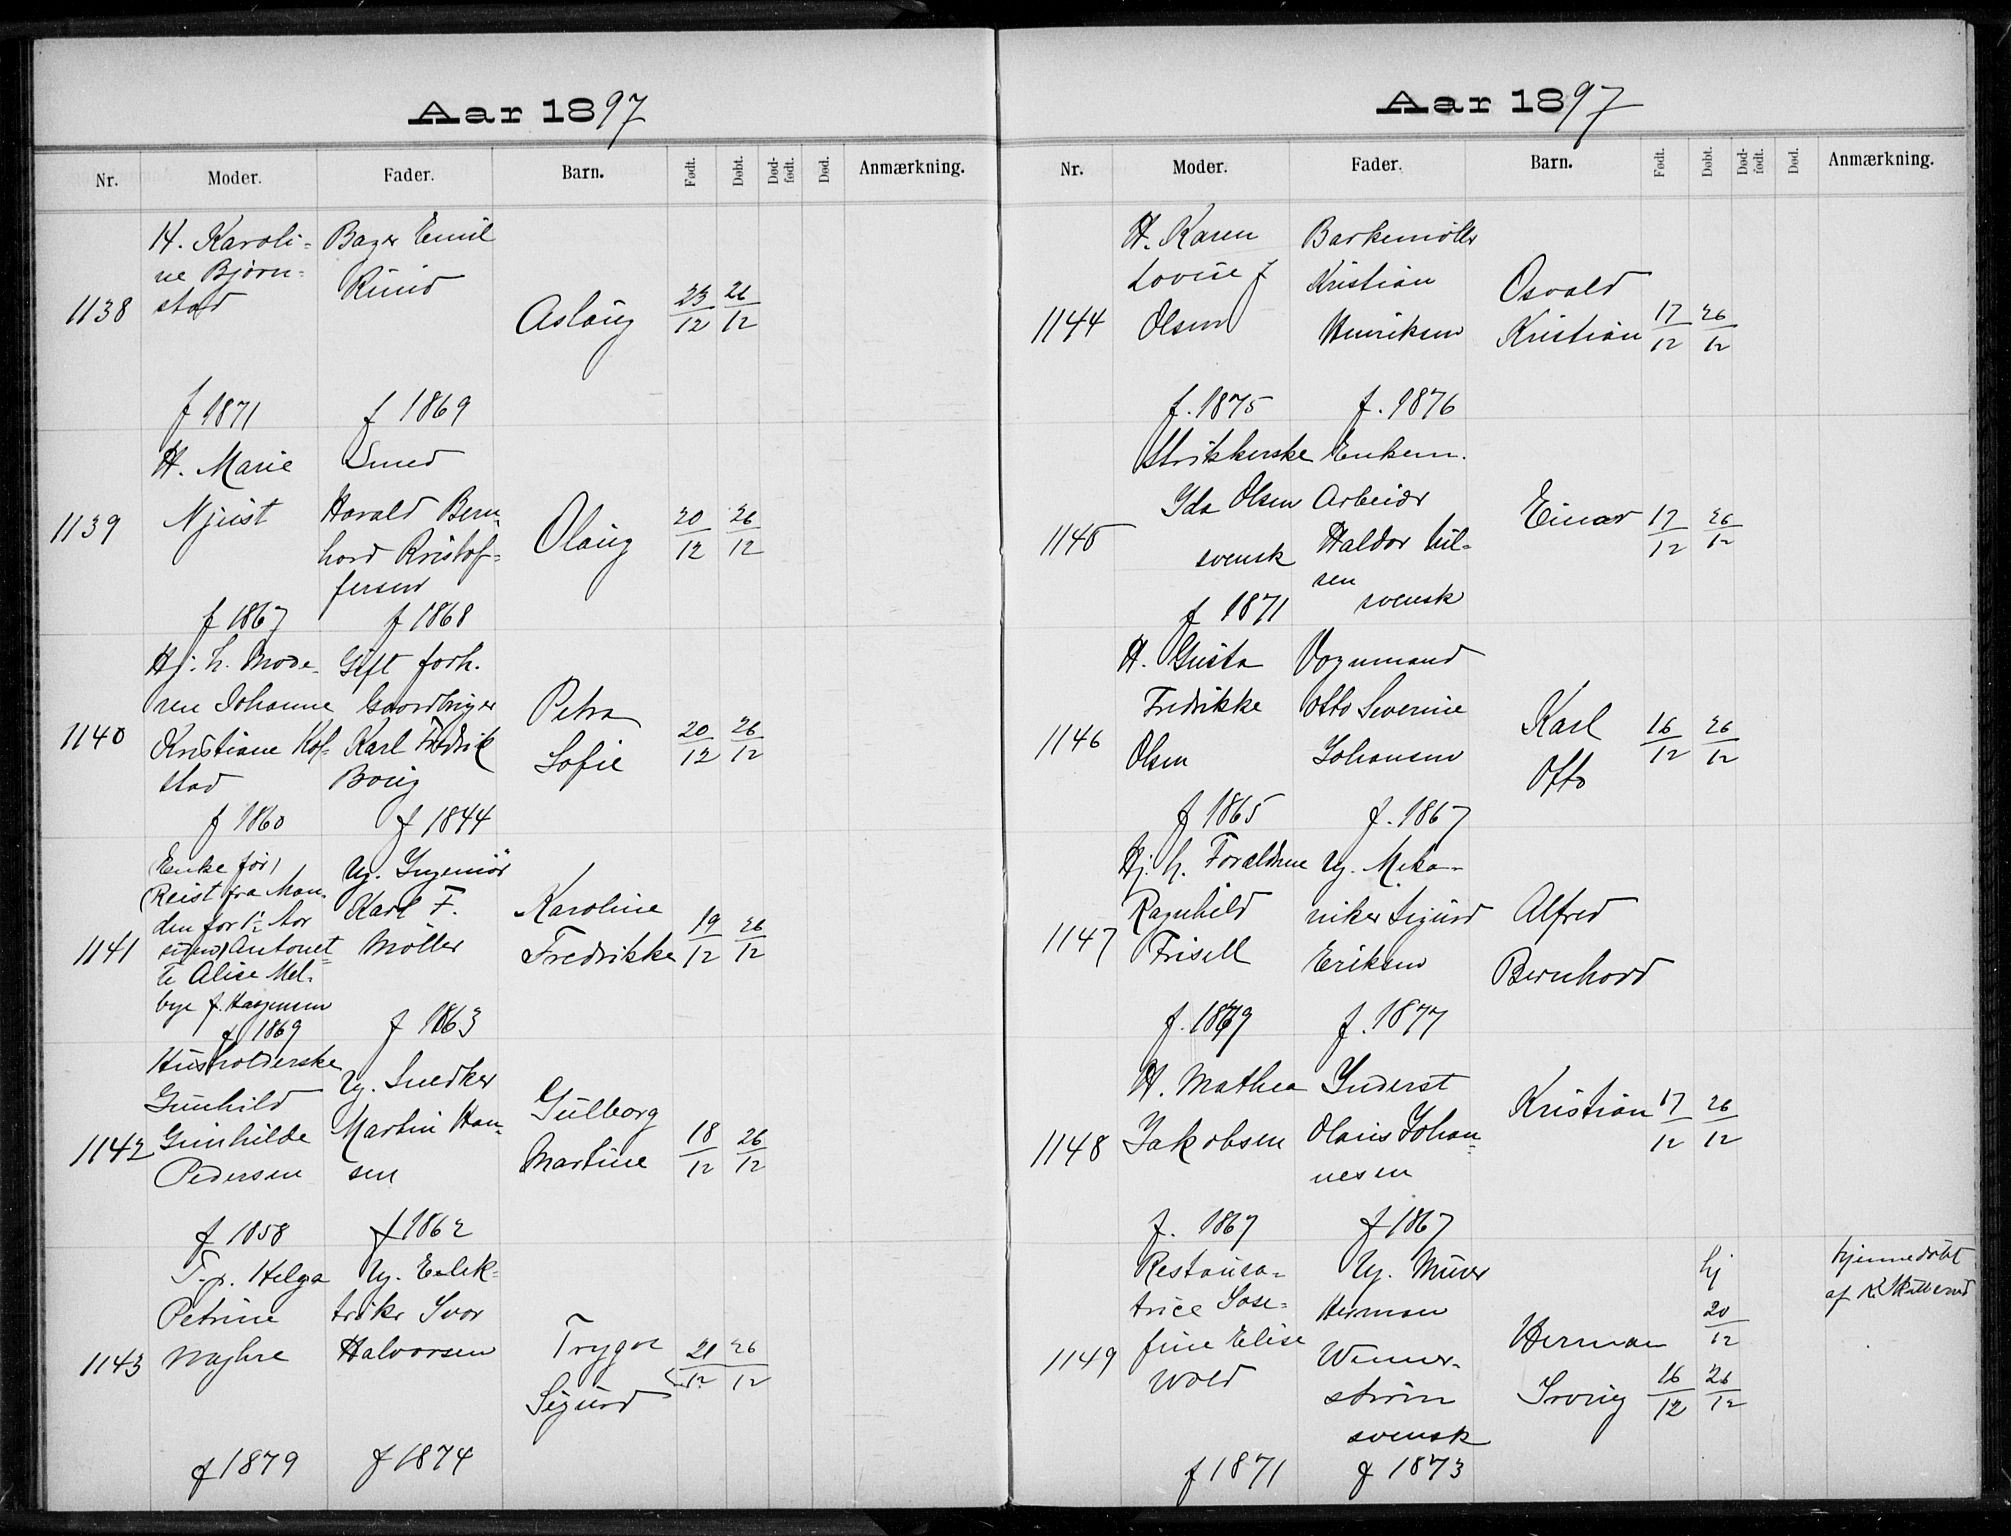 Aar 1897
Nr. Moder. Fader. Barn. Født. Døbt. Dødfødt. Død. Anmærkning.
1138
H. Karoli-
ne Bjørn-
stad
f 1871
Bager Emil
Ruud
f 1869
Aslaug
23/12 26/12
1139
H. Marie
Njust
f 1867
Smed
Harald Bern-
hard Kristof-
fersen
f 1868
Olaug
20/12 26/12
1140
Hj. h. Mode-
ren Johanne
Kristiane Kol-
stad
f 1860
Gift forh.
Gaardbruger
Karl Fredrik
Borig
f 1844
Petra
Sofie
20/12 26/12
1141
Enke før)
(Reist fra Man-
den for 1½ Aar
siden) Antonet-
te Alise Mel-
bye f.
f 1869
Ug. Ingeniør
Karl F.
Møller
f 1863
Karoline
Fredrikke
19/12 26/12
1142
Husholderske
Gunhild
Gunhilde
Pedersen
f 1858
Ug. Snedker
Martin Han-
sen
f 1862
Gulborg
Martine
18/12 26/12
1143
T. p. Helga
Petrine
Myhre
f 1879
Ug. Eelek-
triker Ivar
Halvorsen
f 1874
Trygve
Sigurd
21/12 26/12
Aar 1897
Nr. Moder. Fader. Barn. Født. Døbt. Dødfødt. Død. Anmærkning.
1144
H. Karen
Lovise f
Olsen
f. 1875
Barkemøller
Kristian
Henriksen
f. 1876
Osvald
Kristian
17/12 26/12
1145
Strikkerske
Ida Olsen
svensk
f 1871
Enkem.
Arbeider
Haldor Nil-
sen
svensk
Einar
17/12 26/12
1146
H. Gusta
Fredrikke
Olsen
f 1865
Vognmand
Otto Severine
Johansen
f. 1867
Karl
Otto
16/12 26/12
1147
Hj. h. Forældrene
Ragnhild
Frisell
f. 1879
Ug. Meka-
niker Sigurd
Eriksen
f. 1877
Alfred
Bernhard
1148
H. Mathea
Jakobsen
f. 1867
Inderst
Olaus Johan-
nesen
f 1867
Kristian
17/12 26/12
1149
Restaura-
trice Jose-
fine Elise
Wold
f 1871
Ug. Murer
Herman
Wenner-
strøm
svensk
f 1873
Herman
Irving
16/12
hj
20/12
26/12
hjemmedøbt
af K.